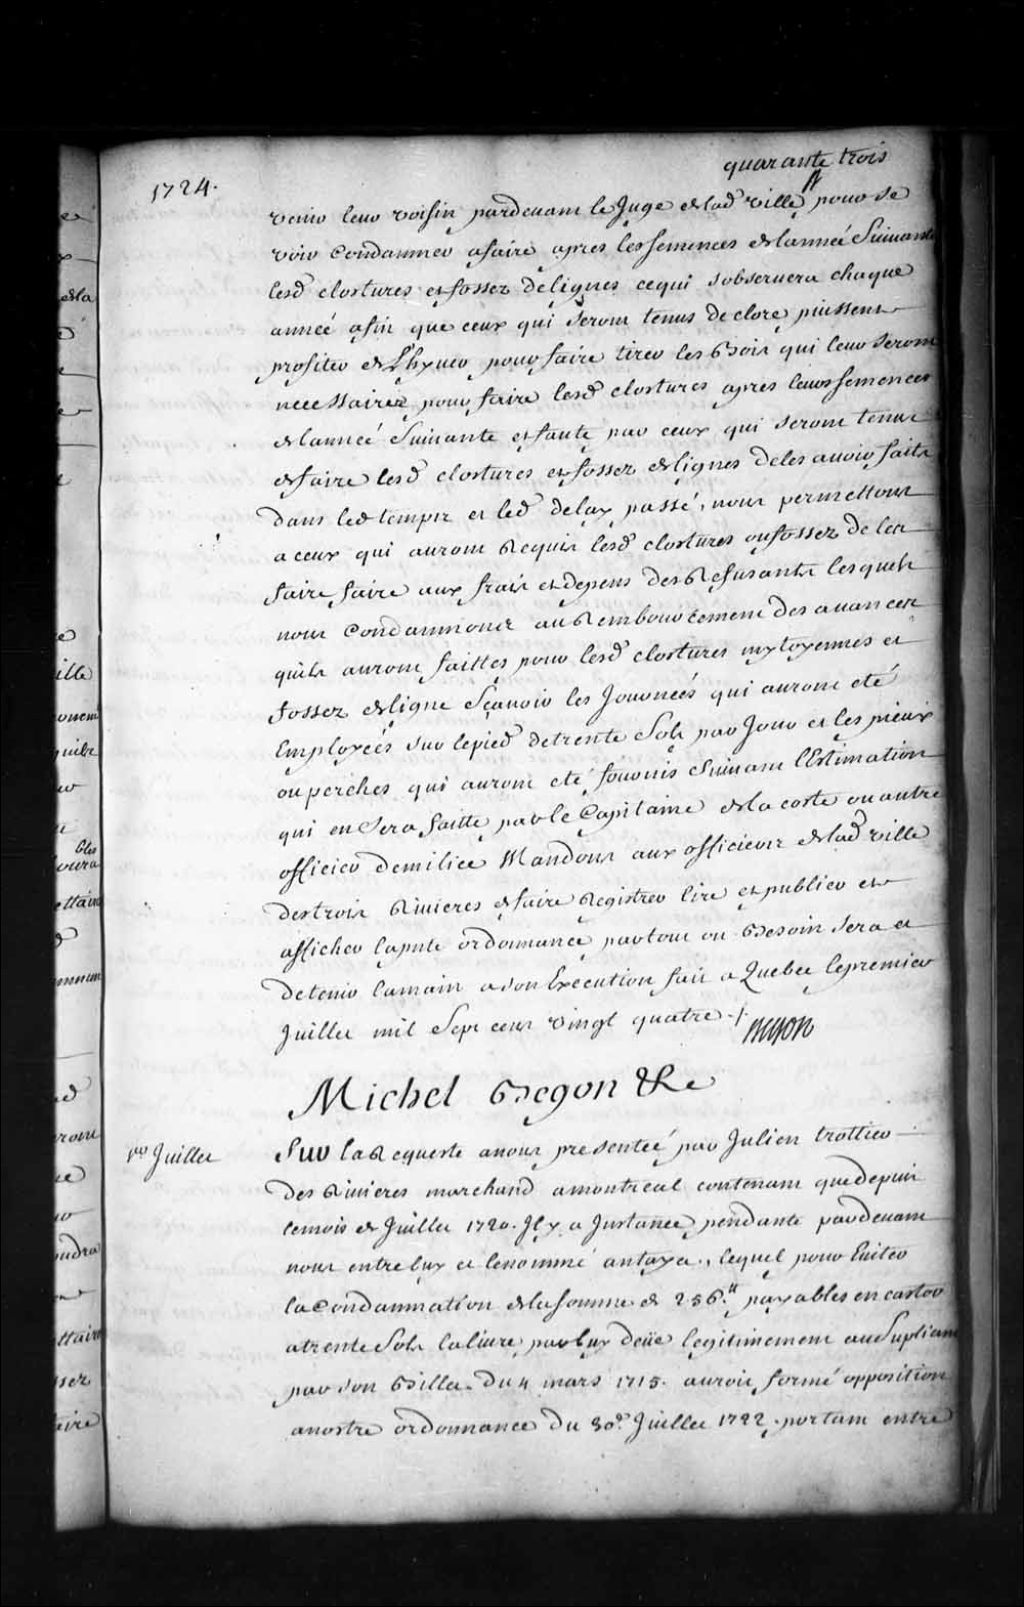 quarante trois
1724.
venir leur voisin pardevant le Juge de lad. ville pour se
voir Condamner afaire apres les semences de lannée Suivante
lesd. clostures et fossez de lignes cequi sobservera chaque
année afin que ceux qui seront tenus de clore puissent
profiter de l'hyver pour faire tirer les Bois qui leur seront
necessaires pour faire lesd. clostures apres leurs semences
de lannée Suivante et faute par ceux qui seront tenus
de faire lesd. clostures et fossez de lignes deles avoir faits
dans led. temps et led. delay passé, nous permettons
a ceux qui auront Requis lesd. clostures ou fossez de les
faire faire aux frais et depens des Refusants lesquels
nous Condamnons au Remboursement des avances
quils auront faittes pour lesd. clostures mytoyennes et
fossez de ligne Sçavoir les Journées qui auront eté
Employées sur lepied de trente Sols par Jour et les pieux
ou perches qui auront eté fournis Suivant l'Estimation
qui en Sera faitte par le Capitaine de la coste ou autre
officier demilice Mandons aux officiers de lad. ville
des trois Rivieres de faire Registrer lire et publier et
afficher lapnte ordonnance partout ou Besoin sera et
de tenir lamain a son Execution fait a Quebec lepremier
Juillet mil Sept cent vingt quatre./.
Begon
Michel Begon &c
1er Juillet
Sur la Requeste anous presentée par Julien trottier
des Rivieres marchand amontreal contenant que depuis
lemois de Juillet 1720. Il y a Instance pendante pardevant
nous entre luy et lenommé antaya, lequel pour Eviter
la Condamnation de la somme de 256.ll payables en castor
atrente Sols la livre par luy deüe legitimement au Supliant
par son Billet du 4 mars 1715. auroit formé opposition
anostre ordonnance du 30e. Juillet 1722. portant entre